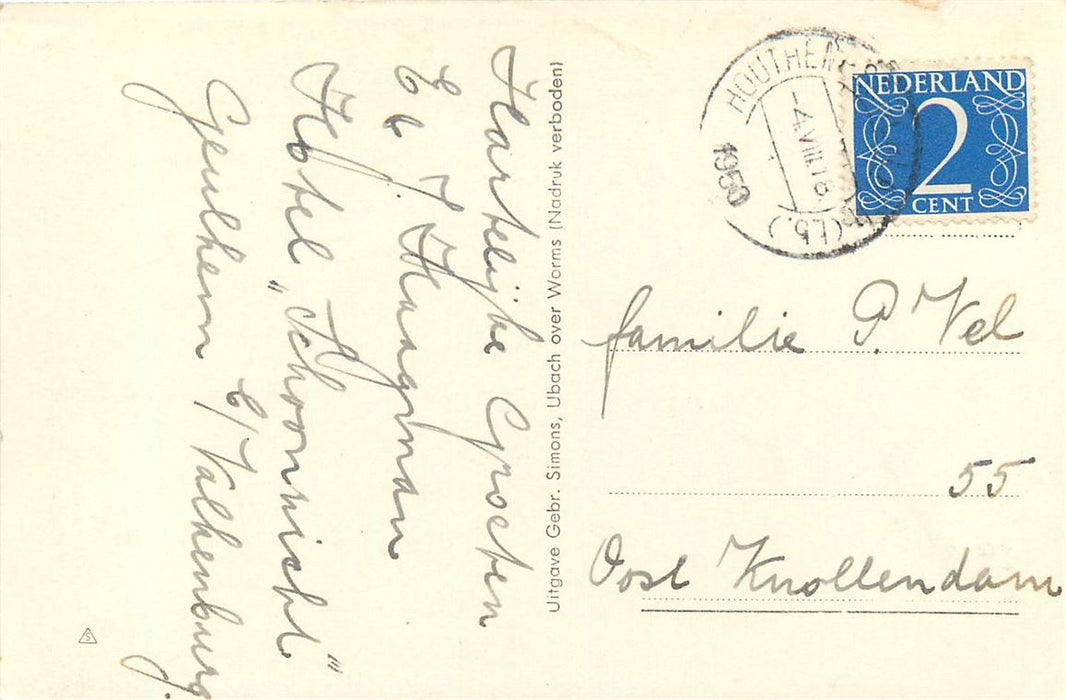 Hartelijke Groeten
J. Haagman
Hotel „Schoonzicht"
Geulhem b/Valkenburg.
Uitgave Gebr. Simons, Ubach over Worms (Nadruk verboden)
HOUTHEM
4.VIII.18
1950
(Lb.)
NEDERLAND
2
CENT
familie P. Vel
55
Oost Knollendam
S